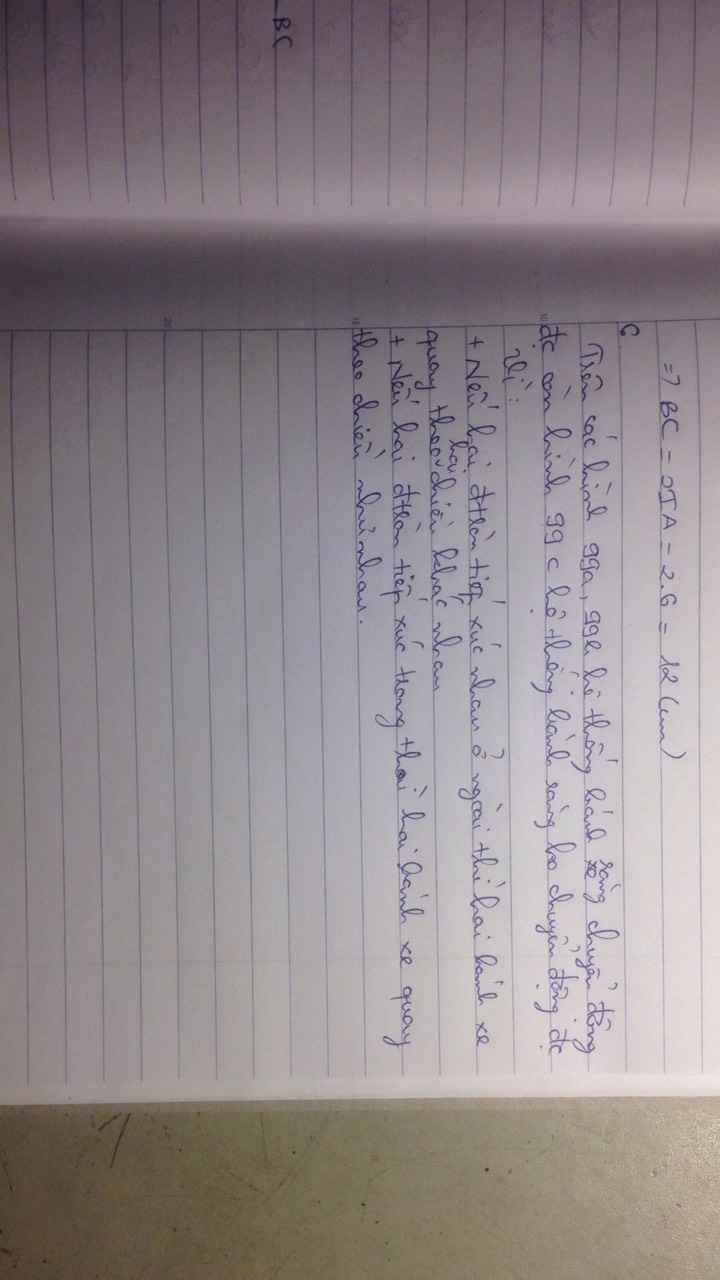 BC
=> BC = 2IA = 2.6 = 12 (cm)
C
Trên các hình 99a, 99b hệ thống bánh răng chuyển động
đc còn hình 99c hệ thống bánh răng ko chuyển động đc
Vì:
+ Nếu hai đtròn tiếp xúc nhau ở ngoài thì hai bánh xe
quay theo hai chiều khác nhau
+ Nếu hai đtròn tiếp xúc trong thì hai bánh xe quay
theo chiều như nhau.